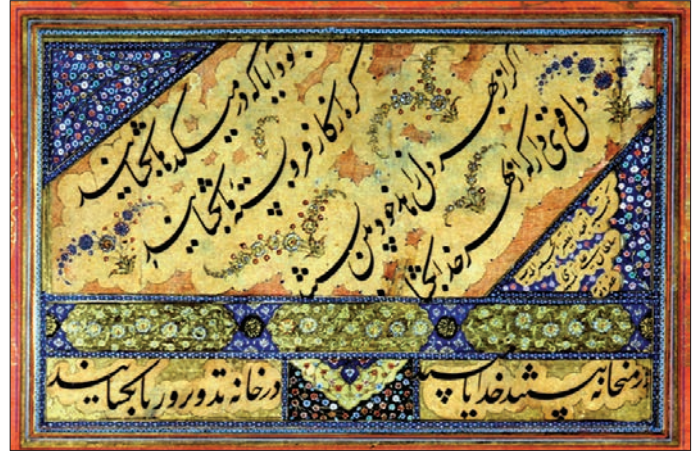 بود آیا که در میکدها بگشایند
گره از کار فروبستهٔ ما بگشایند
اگر از بهر دل زاهد خودبین بستند
دل قوی دار که از بهر خدا بگشایند
در میخانه ببستند خدایا مپسند
در خانه تزویر و ریا بگشایند